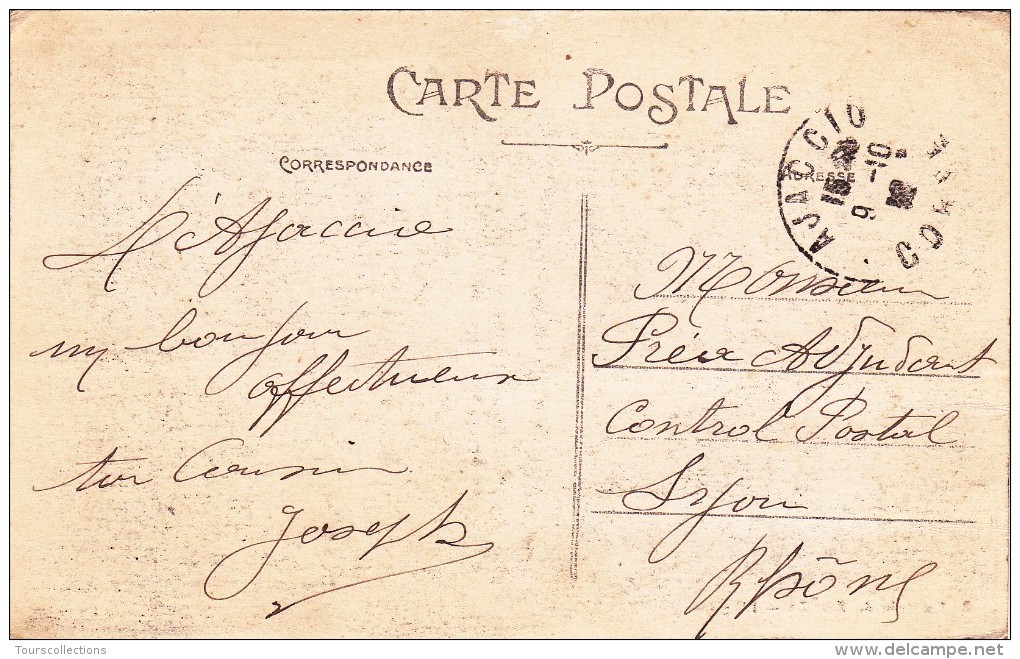 CARTE POSTALE
CORRESPONDANCE
D'Ajaccio
un bonjour
affectueux
ton Cousin
Joseph
ADRESSE
AJACCIO
15-10
9
CORSE
Monsieur
Adjudant
Control Postal
Lyon
Rhône
Tourscollections
www.delcampe.net